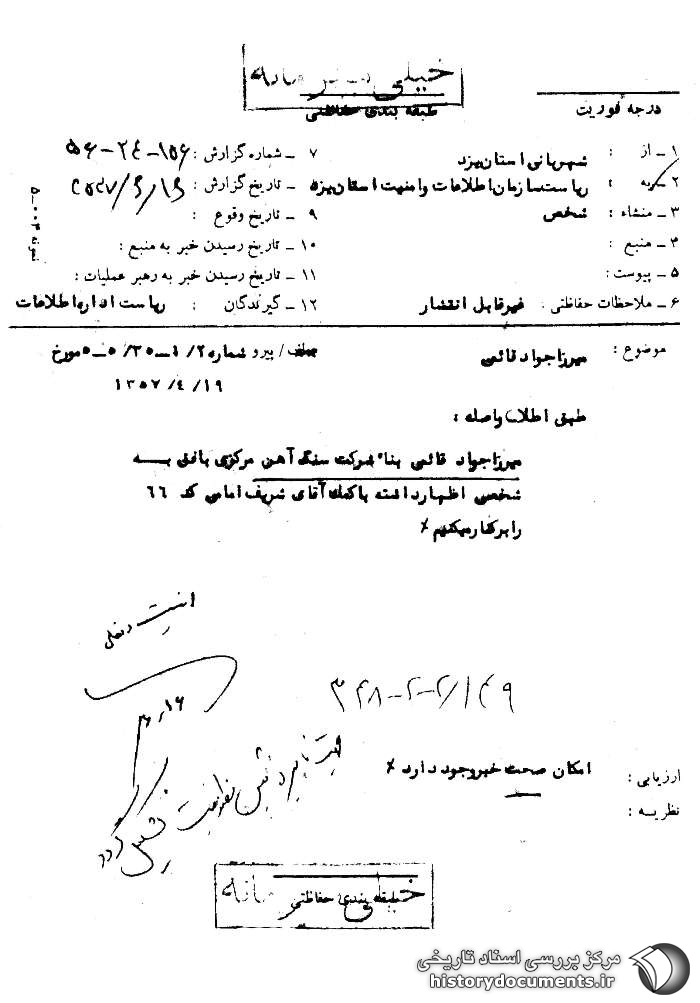 خیلی محرمانه
طبقه بندی حفاظتی
درجه فوریت
۱ ـ از : شهربانی استان یزد
۲ ـ به : ریاست سازمان اطلاعات و امنیت استان یزد
۳ ـ منشاء : شخص
۴ ـ منبع :
۵ ـ پیوست :
۶ ـ ملاحظات حفاظتی : غیرقابل انتشار
۷ ـ شماره گزارش : ۱۵۶-۲۴-۵۶
۸ ـ تاریخ گزارش :
۹ ـ تاریخ وقوع :
۱۰ ـ تاریخ رسیدن خبر به منبع :
۱۱ ـ تاریخ رسیدن خبر به رهبر عملیات :
۱۲ ـ گیرندگان : ریاست اداره اطلاعات
نمونه ۵۰۰۴
موضوع : میرزا جواد قائمی
/ پیرو شماره ۱/۲ـ۵/۳۵ـ۵ مورخ
۱۳۵۷/۴/۱۹
طبق اطلاع واصله :
میرزا جواد قائمی بناء شرکت سنگ آهن مرکزی بافق بـــه
شخصی اظهار داشته با کمک آقای شریف امامی کد ۶۶
را برکنار میکنیم ٪
امنیت داخلی
۱۶/۶
۳۴۸-۲-۲/۱۴۹
ارزیابی : امکان صحت خبر وجود دارد ٪
نظریـه :
خیلی محرمانه
طبقه بندی حفاظتی
مرکز بررسی اسناد تاریخی
historydocuments.ir